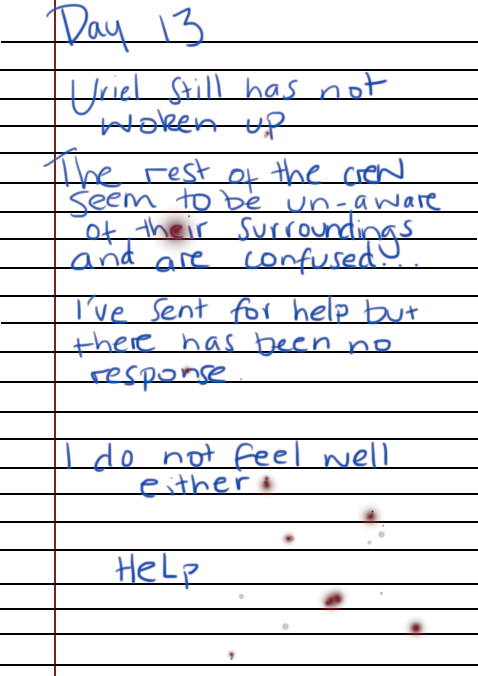 Day 13
Uriel still has not
woken up
The rest of the crew
seem to be un-aware
of their surroundings
and are confused...
I've sent for help but
there has been no
response.
I do not feel well
either
HeLp